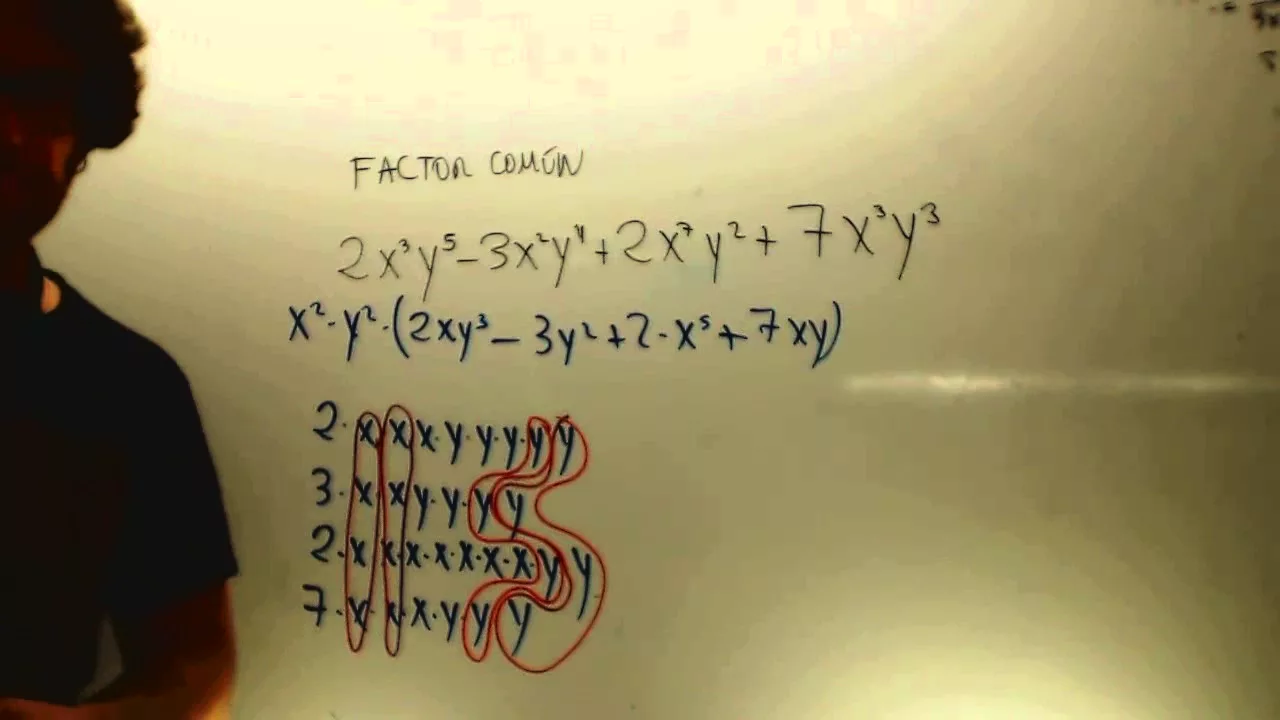 FACTOR COMÚN
2x³y⁵-3x²y⁴+2x⁷y²+7x³y³
x²·y²·(2xy³-3y²+2·x⁵+7xy)
2·x·x·x·y·y·y·y·y
3·x·x·y·y·y·y
2·x·x·x·x·x·x·x·y·y
7·x·x·x·y·y·y